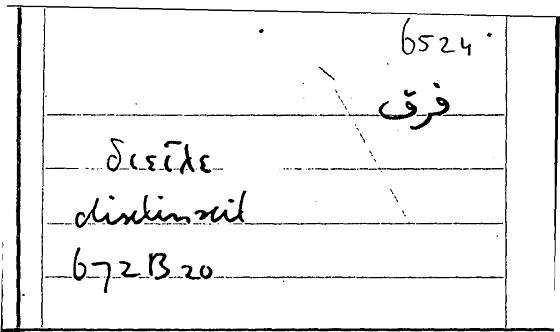 6524
فرق
διεῖλε
distinxit
672B20